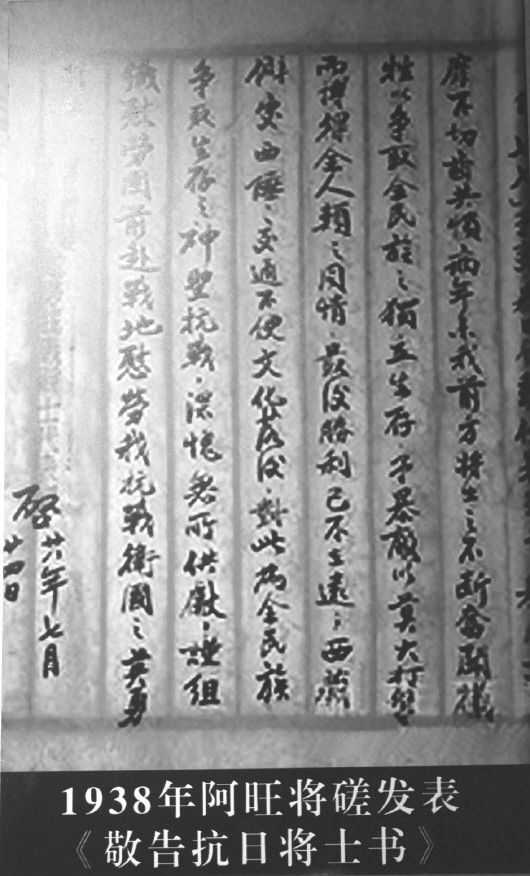 靡不切齿共愤两年来我前方将士之不断奋斗牺
牲以争取全民族之独立生存予暴敌以莫大打击
而博得全人类之同情最后胜利已不在远西藏
僻处西陲交通不便文化落后对此为全民族
争取生存之神圣抗战深愧无所供献谨组
织慰劳团前赴战地慰劳我抗战卫国之英勇
启廿八年七月
廿四日
1938年阿旺将磋发表
《敬告抗日将士书》